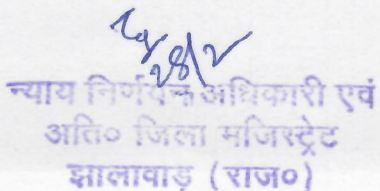 28/2
न्याय निर्णयन अधिकारी एवं
अति० जिला मजिस्ट्रेट
झालावाड़ (राज०)